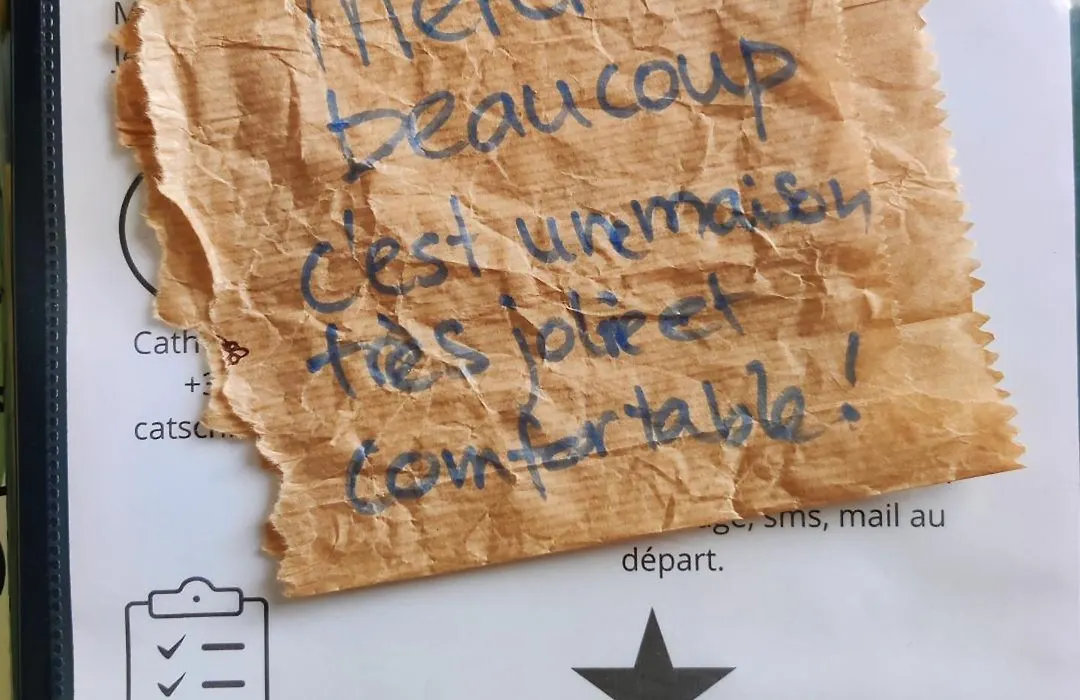 Merci
beaucoup
c'est une maison
très jolie et
comfortable!
Cath
+3
catsc
sms, mail au
départ.